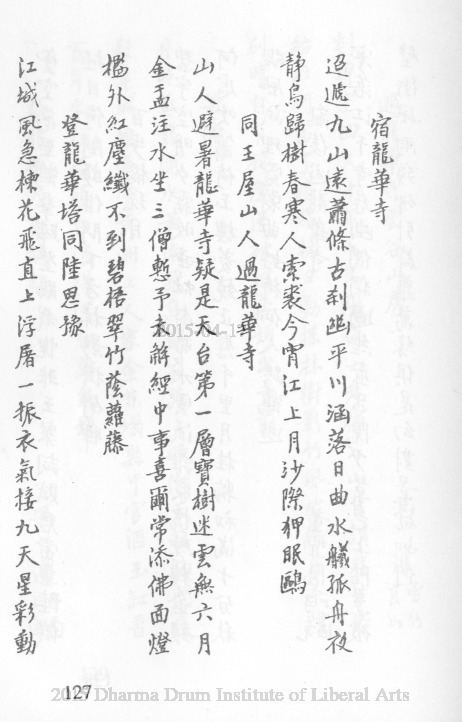 宿龍華寺
迢遞九山遠蕭條古刹幽平川涵落日曲水艤孤舟夜
静烏歸樹春寒人索裘今宵江上月沙際狎眠鷗
同王屋山人過龍華寺
山人避暑龍華寺疑是天台第一層寶樹迷雲無六月
金盂注水坐三僧慙予未解經中事喜爾常添佛面燈
檻外紅塵纖不到碧梧翠竹蔭蘿藤
登龍華塔同陸思豫
江城風急棟花飛直上浮屠一振衣氣接九天星彩動
127
Dharma Drum Institute of Liberal Arts